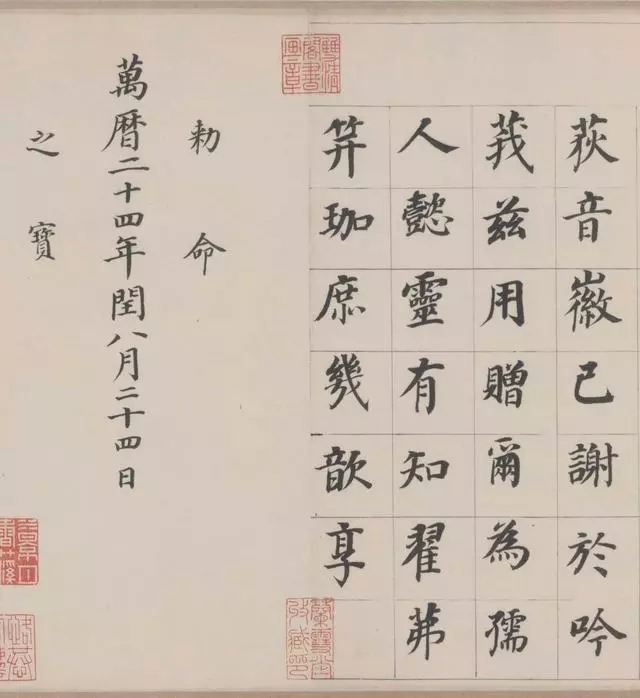 荻音徽已謝於吟
莪茲用贈爾為孺
人懿靈有知翟茀
笄珈庶幾歆享
勅命
萬曆二十四年閏八月二十四日
之寶